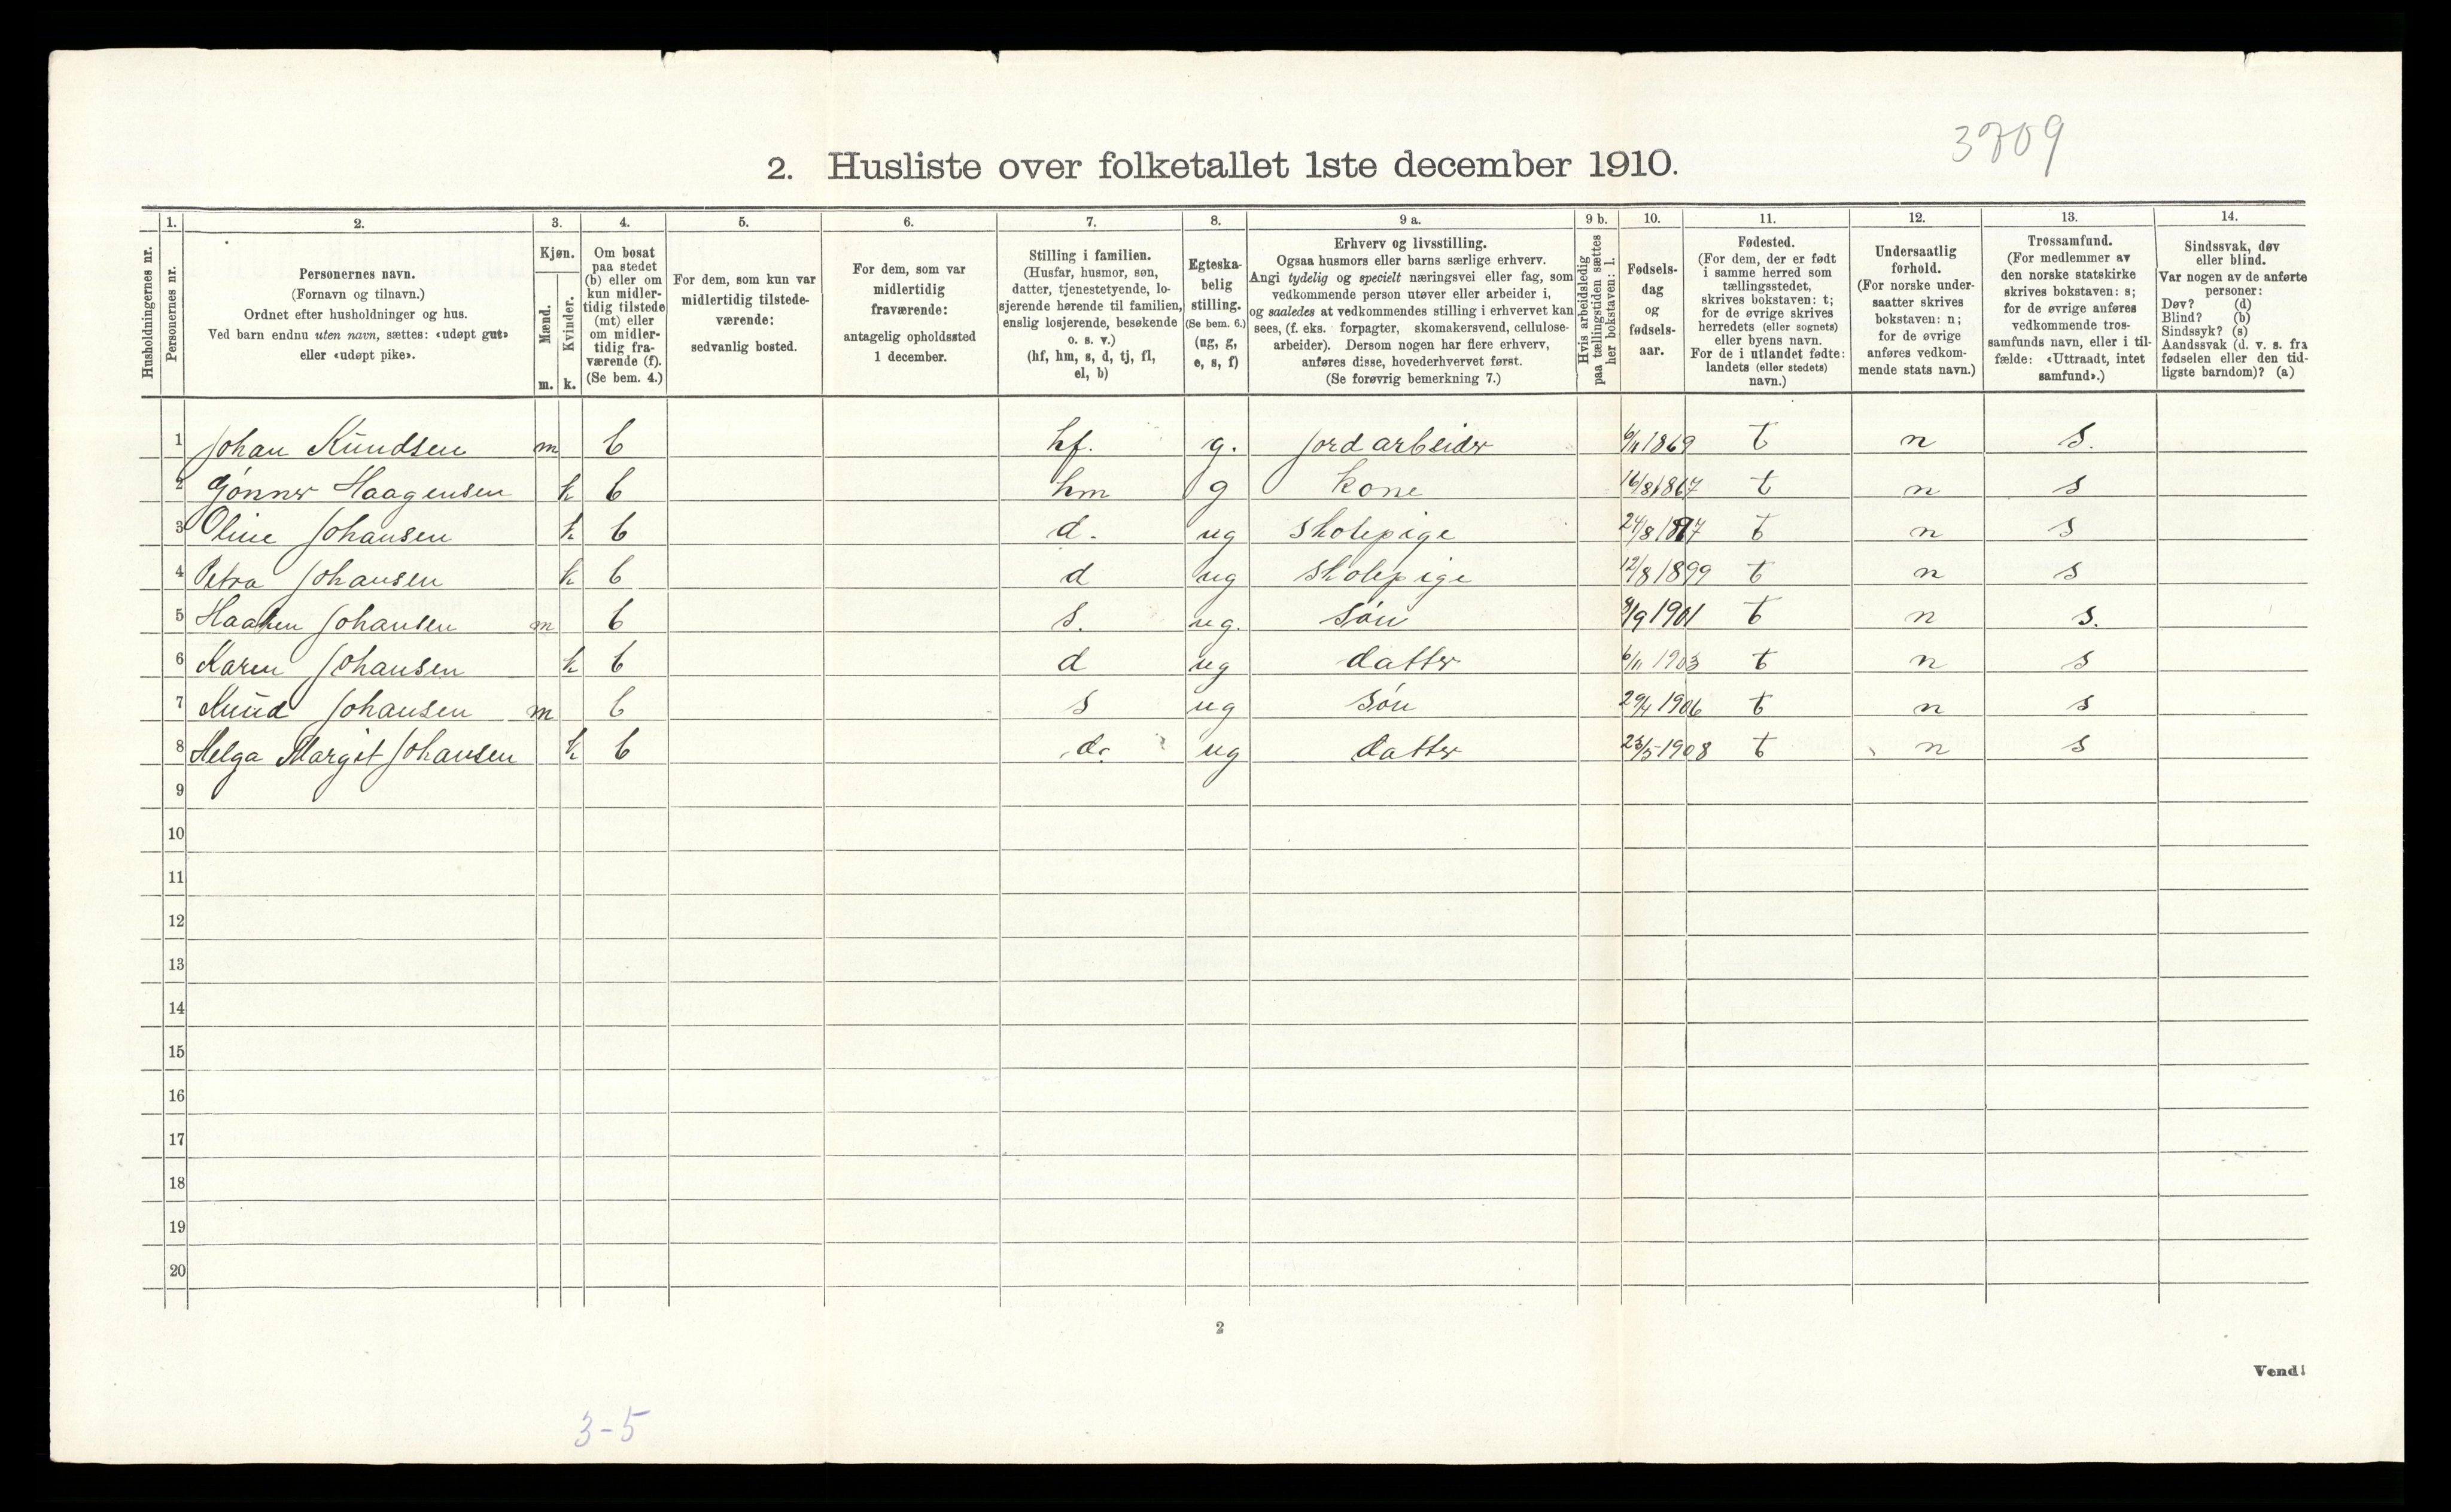 3709
2. Husliste over folketallet 1ste december 1910.
Husholdningernes nr.
1.
Personernes nr.
2.
Personernes navn.
(Fornavn og tilnavn.)
Ordnet efter husholdninger og hus.
Ved barn endnu uten navn, sættes: «udøpt gut»
eller «udøpt pike».
3.
Kjøn.
Mænd.
Kvinder.
m. k.
4.
Om bosat
paa stedet
(b) eller om
kun midler-
tidig tilstede
(mt) eller
om midler-
tidig fra-
værende (f).
(Se bem. 4.)
5.
For dem, som kun var
midlertidig tilstede-
værende:
sedvanlig bosted.
6.
For dem, som var
midlertidig
fraværende:
antagelig opholdssted
1 december.
7.
Stilling i familien.
(Husfar, husmor, søn,
datter, tjenestetyende, lo-
sjerende hørende til familien,
enslig losjerende, besøkende
o. s. v.)
(hf, hm, s, d, tj, fl,
el, b)
8.
Egteska-
belig
stilling.
(Se bem. 6.)
(ug, g,
e, s, f)
9 a.
Erhverv og livsstilling.
Ogsaa husmors eller barns særlige erhverv.
Angi tydelig og specielt næringsvei eller fag, som
vedkommende person utøver eller arbeider i,
og saaledes at vedkommendes stilling i erhvervet kan
sees, (f. eks. forpagter, skomakersvend, cellulose-
arbeider). Dersom nogen har flere erhverv,
anføres disse, hovederhvervet først.
(Se forøvrig bemerkning 7.)
9 b.
Hvis arbeidsledig
paa tællingstiden sættes
her bokstaven: l.
10.
Fødsels-
dag
og
fødsels-
aar.
11.
Fødested.
(For dem, der er født
i samme herred som
tællingsstedet,
skrives bokstaven: t;
for de øvrige skrives
herredets (eller sognets)
eller byens navn.
For de i utlandet fødte:
landets (eller stedets)
navn.)
12.
Undersaatlig
forhold.
(For norske under-
saatter skrives
bokstaven: n;
for de øvrige
anføres vedkom-
mende stats navn.)
13.
Trossamfund.
(For medlemmer av
den norske statskirke
skrives bokstaven: s;
for de øvrige anføres
vedkommende tros-
samfunds navn, eller i til-
fælde: «Uttraadt, intet
samfund».)
14.
Sindssvak, døv
eller blind.
Var nogen av de anførte
personer:
Døv? (d)
Blind? (b)
Sindssyk? (s)
Aandssvak (d. v. s. fra
fødselen eller den tid-
ligste barndom)? (a)
1 Johan Kundsen m b hf. g. jordarbeider 6/11 1869 t n s.
2 Gønner Haagensen k b hm g kone 16/8 1867 t n s
3 Oline Johansen k b d. ug skolepige 24/8 1897 t n s
4 Petra Johansen k b d ug skolepige 12/8 1899 t n s
5 Haaken Johansen m b s. ug. søn /9 1901 t n s.
6 Karen Johansen k b d ug datter 6/11 1903 t n s
7 Knud Johansen m b s ug søn 29/4 1906 t n s
8 Helga Margit Johansen k b d. ug datter 23/5 1908 t n s
9
10
11
12
13
14
15
16
17
18
19
20
2
Vend!
3-5